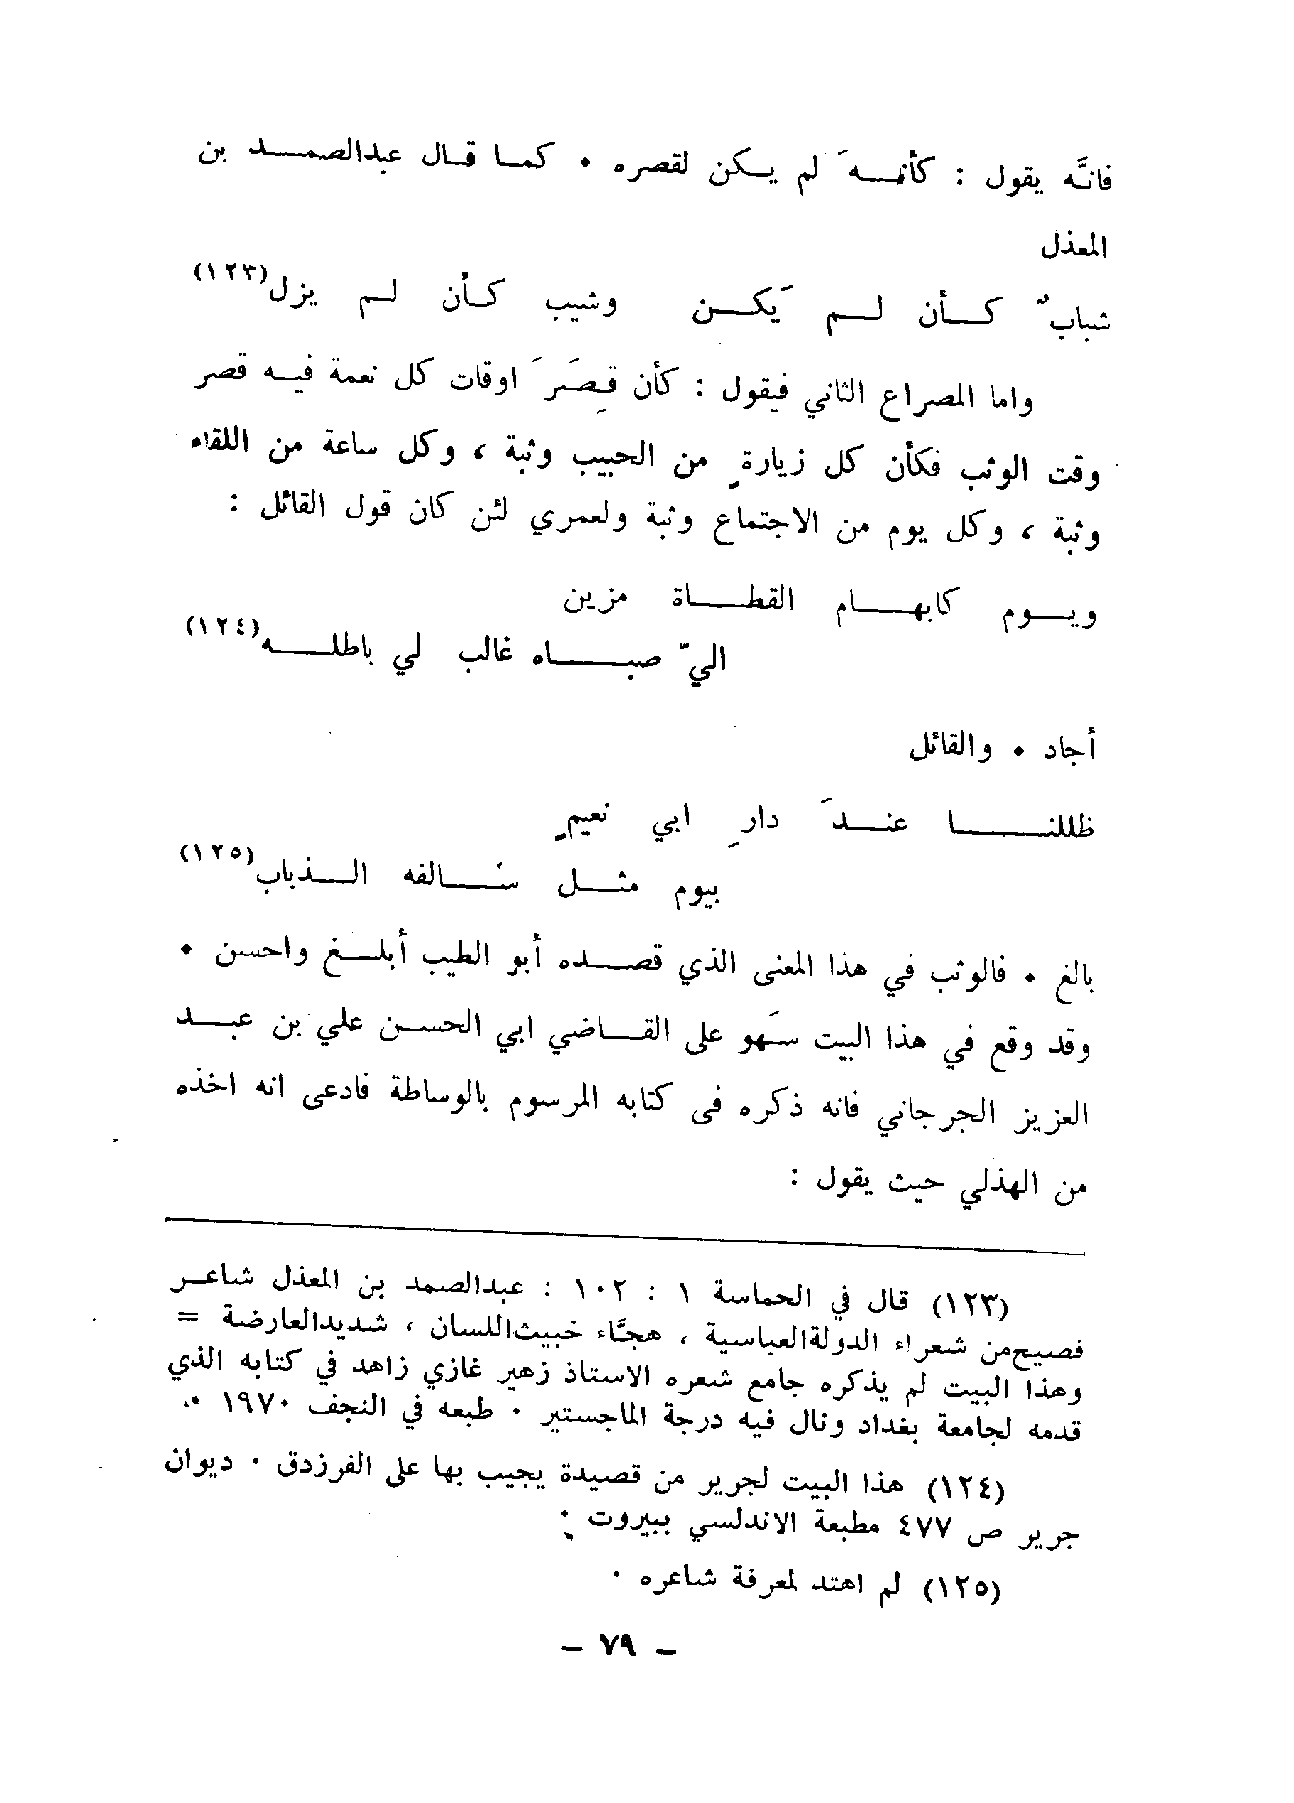 فانَّه يقول : كأنهَ لم يكن لقصره . كما قال عبدالصمد بن
المعذل
شبابٌ كأن لم يَكن وشيب كأن لم يزل(١٢٣)
واما المصراع الثاني فيقول : كأن قِصَرَ اوقات كل نعمة فيه قصر
وقت الوثب فكأن كل زيارةٍ من الحبيب وثبة ، وكل ساعة من اللقاء
وثبة ، وكل يوم من الاجتماع وثبة ولعمري لئن كان قول القائل :
ويوم كابهام القطاة مزين
اليّ صباه غالب لي باطله(١٢٤)
أجاد . والقائل
ظللنا عندَ دارِ ابي نعيمٍ
بيوم مثل سُالفه الذباب(١٢٥)
بالغ . فالوثب في هذا المعنى الذي قصده أبو الطيب أبلغ واحسن .
وقد وقع في هذا البيت سَهو على القاضي ابي الحسن علي بن عبد
العزيز الجرجاني فانه ذكره فى كتابه المرسوم بالوساطة فادعى انه اخذه
من الهذلي حيث يقول :
(١٢٣) قال في الحماسة ١ : ١٠٢ : عبدالصمد بن المعذل شاعر
فصيح من شعراء الدولة العباسية ، هجَّاء خبيث اللسان ، شديدالعارضة =
وهذا البيت لم يذكره جامع شعره الاستاذ زهير غازي زاهد في كتابه الذي
قدمه لجامعة بغداد ونال فيه درجة الماجستير . طبعه في النجف ١٩٧٠ .
(١٢٤) هذا البيت لجرير من قصيدة يجيب بها على الفرزدق . ديوان
جرير ص ٤٧٧ مطبعة الاندلسي ببيروت .
(١٢٥) لم اهتد لمعرفة شاعره .
– ٧٩ –